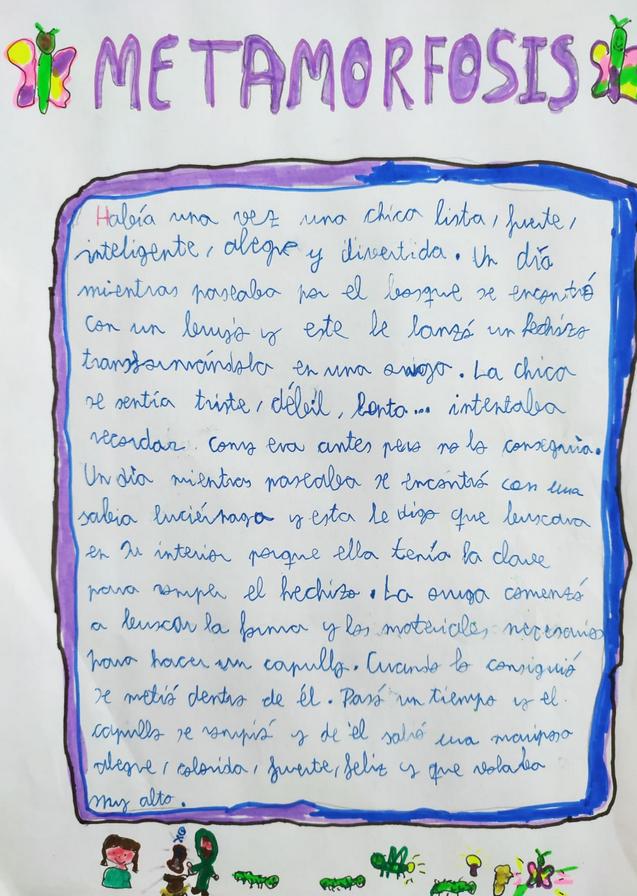 METAMORFOSIS
Había una vez una chica lista, fuerte,
inteligente, alegre y divertida. Un día
mientras paseaba por el bosque se encontró
con un brujo y este le lanzó un hechizo
transformándola en una oruga. La chica
se sentía triste, débil, lenta... intentaba
recordar como era antes pero no lo conseguía.
Un día mientras paseaba se encontró con una
sabia luciérnaga y esta le digo que buscara
en su interior porque ella tenía la clave
para romper el hechizo. La oruga comenzó
a buscar la forma y los materiales necesarios
para hacer un capullo. Cuando lo consiguió
se metió dentro de él. Pasó un tiempo y el
capullo se rompió y de él salió una mariposa
alegre, colorida, fuerte, feliz y que volaba
muy alto.